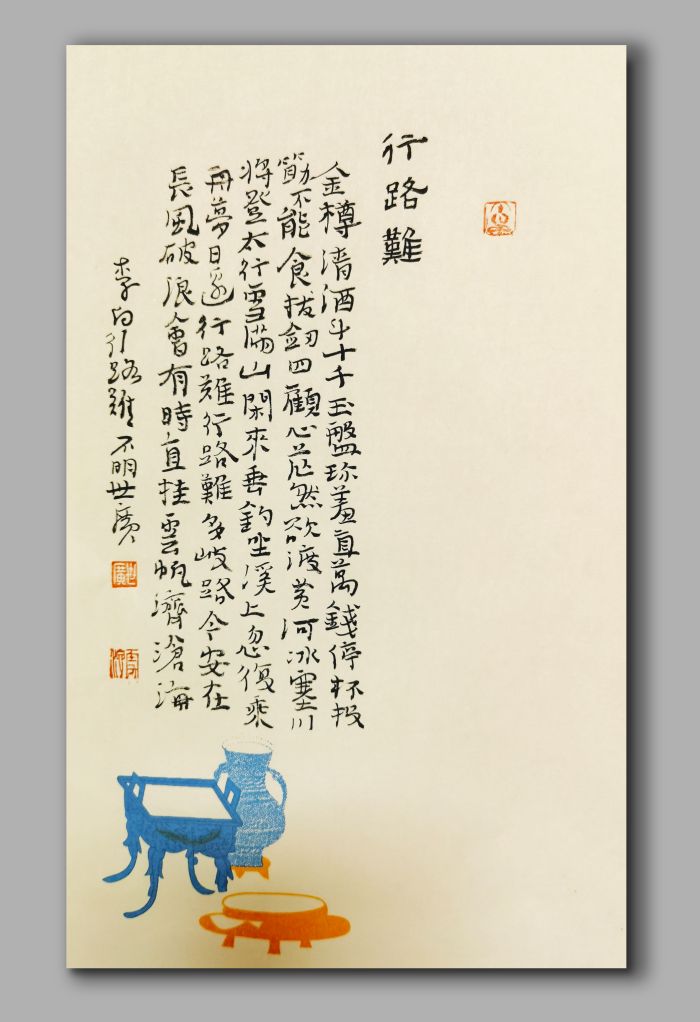 行路難
金樽清酒斗十千玉盤珎羞直萬錢停杯投
筯不能食拔劍四顧心茫然欲渡黃河冰塞川
將登太行雪滿山閑來垂釣坐溪上忽復乘
舟夢日邊行路難行路難多岐路今安在
長風破浪會有時直挂雲帆濟滄海
李白行路難不明世廣
世廣